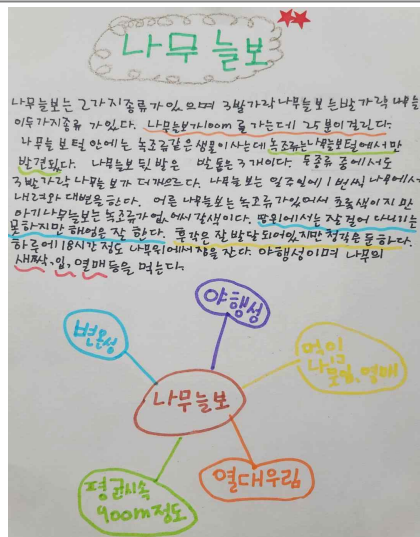 나무늘보
나무늘보는 2가지종류가있으며 3발가락나무늘보와 두발가락 나무늘보
이두가지종류 가있다. 나무늘보가100m 를가는데 25분이걸린다.
나무늘보 털 안에는 녹조류같은생물이사는데 녹조류는나무늘보털에서만
발견된다. 나무늘보 뒷발은 발톱은 3개이다. 두종류 중에서도
3발가락나무늘보가 더게으르다. 나무늘보는 일주일에 1번씩 나무에서
내려와 대변을한다. 어른 나무늘보는 녹조류가있어서 초록색이지만
아기나무늘보는 녹조류가없에서갈색이다. 땅위에서는 잘걸어 다니지는
못하지만 헤엄은 잘 한다. 후각은잘발달되어있지만청각은둔하다.
하루에 18시간 정도 나무위에서잠을잔다. 야행성이며 나무의
새싹, 잎, 열매 등을 먹는다.
야행성
변온성
먹이
나뭇잎, 열매
나무늘보
평균시속
900m정도
열대우림